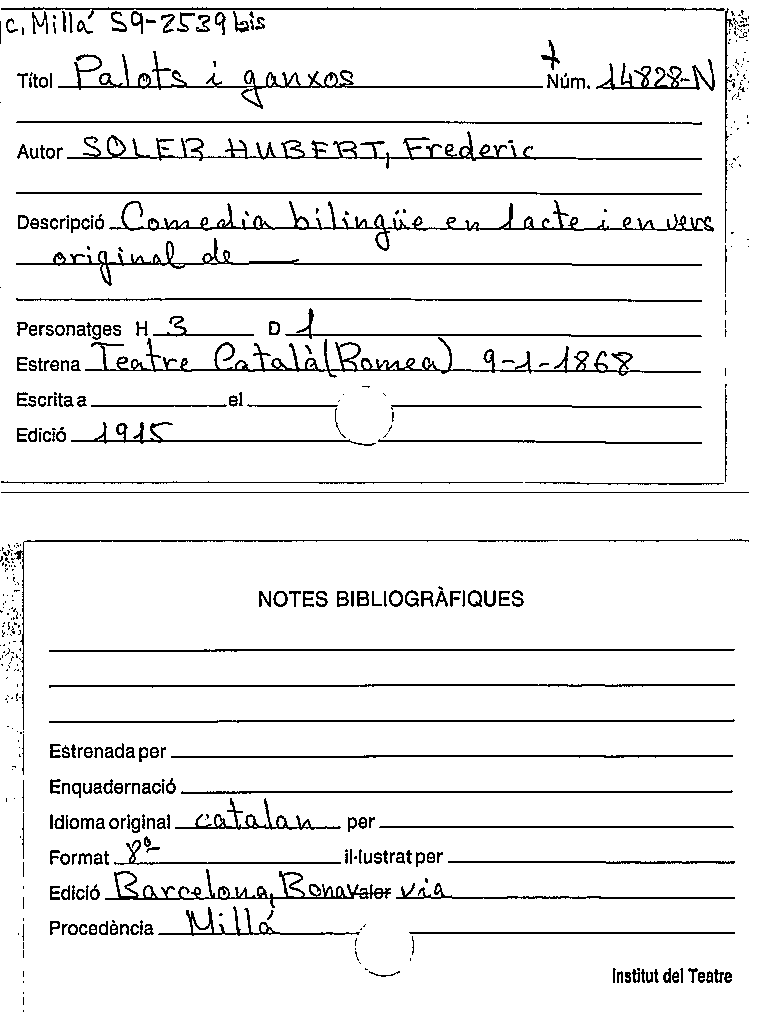 c. Millá S9-2539 bis
Títol Palots i ganxos Núm. 14828-N
Autor SOLER HUBERT, Frederic
Descripció Comedia bilingüe en 1 acte i en vers
original de —
Personatges H 3 D 1
Estrena Teatre Català (Romea) 9-1-1868
Escrita a el
Edició 1915
NOTES BIBLIOGRÀFIQUES
Estrenada per
Enquadernació
Idioma original catalan per
Format 8º il·lustrat per
Edició Barcelona, Bonavia
Procedència Millá
Institut del Teatre